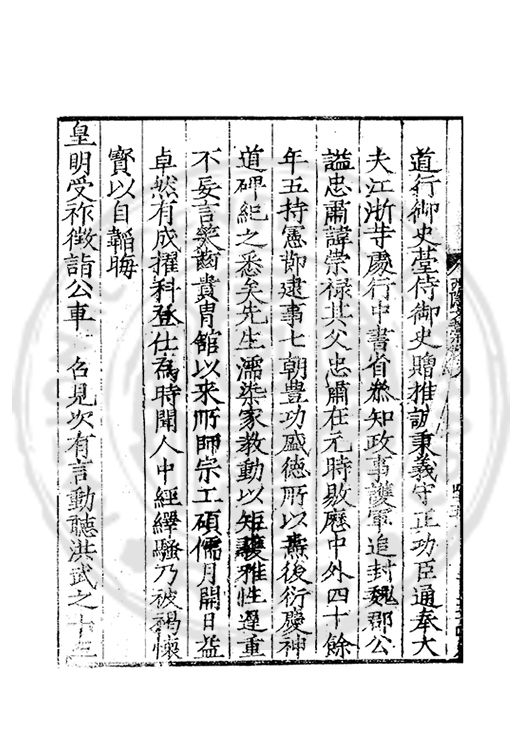 道行御史臺侍御史贈推誠秉義守正功臣通奉大
夫江浙等處行中書省叅知政事護軍追封魏郡公
謚忠肅諱崇祿其父忠肅在元時敭歷中外四十餘
年五持憲節逮事七朝豊功盛德所以燾後衍慶神
道碑紀之悉矣先生濡染家教動以矩矱雅性遲重
不妄言笑齒貴胄館以来所師宗工碩儒月開日益
卓然有成擢科登仕為時聞人中經繹騷乃被褐懷
寳以自韜晦
皇明受祚徵詣公車 召見次有言動聽洪武之十三